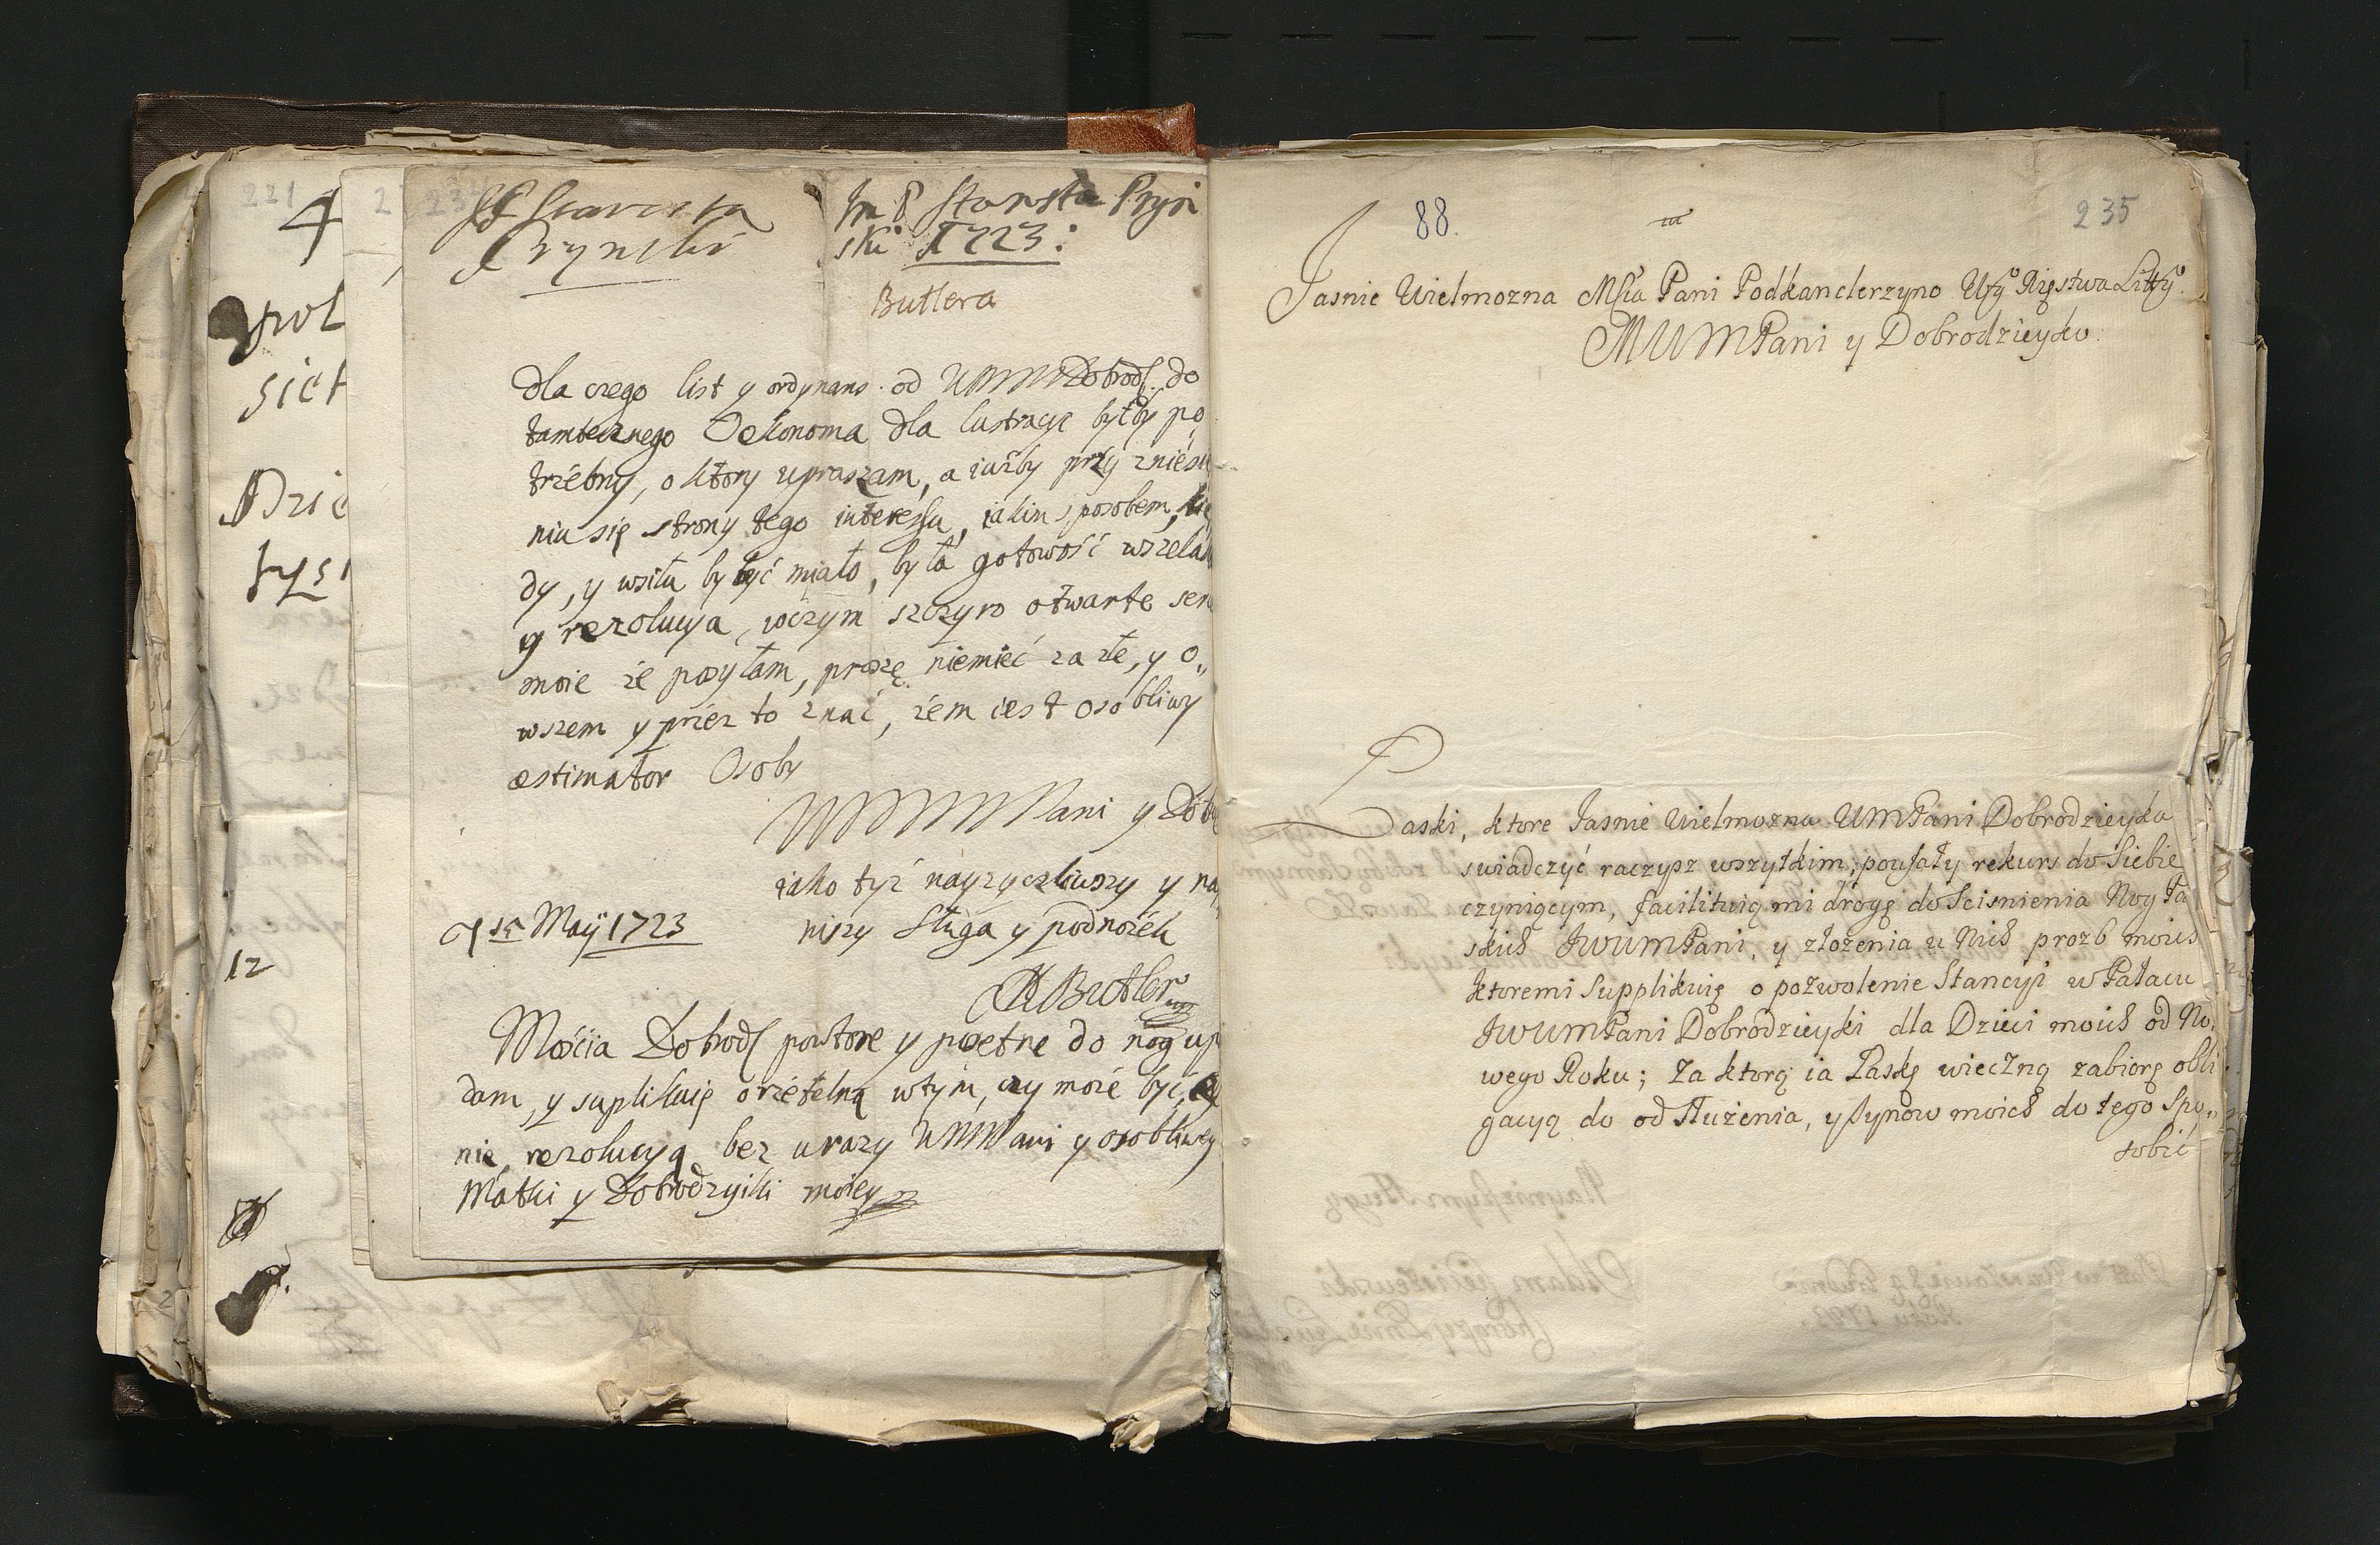 221
4
12
JP Starosta
Prynski
Jm P Starosta Pryn
ski 1723:
Butlera
dla czego list y ordynans od UMMMDobrodz. do
tamtecznego Oekonoma dla lustracyi byłby po„
trzébny, o ktory upraszam, a iużby przy zniésie
niu się strony tego interessu, iakim sposobem, kie
dy, y wsiła by być miało, była gotowość wszelaka
y rezolucya, wczym szczyro otwarte serce
moie ze posyłam, proszę niemieć za złe, y o„
wszem y przez to znać, zem iest osobliwy
æstimator Osoby
WMMMPani y Dobr
iako tyż nayzyczliwszy y na„
niszy Sługa y podnożek
15 Maÿ 1723
Butler
Mościa Dobrodz powtore y poetne do nog up
dam, y suplikuię o rzetelną wtym, czy może być, czy
nie, rezolucyą bez urazy UMMPani y osobliwey
Matki y Dobrodzyiki moiey
88.
235
Jasnie Wielmozna Mscia Pani Podkanclerzyno Wgo Xięstwa Littgo.
MUMPani y Dobrodzieyko.
Łaski, ktore Jasnie Wielmozna UMPani Dobrodzieyka
swiadczyć raczysz wszytkim, poufały rekurs do Siebie
czyniącym, facilituią mi drogę do Scisnienia Nog Ła
skich JWUMPani, y złożenia u Nich prozb moich
ktoremi Supplikuię o pozwolenie Stancyi w Pałacu
JWUMPani Dobrodzieyki dla Dzieci moich od No„
wego Roku; Za ktorą ia Łaskę wieczną zabiorę obli
gacyą do od Służenia, y Synow moich do tego Spo„
sobić